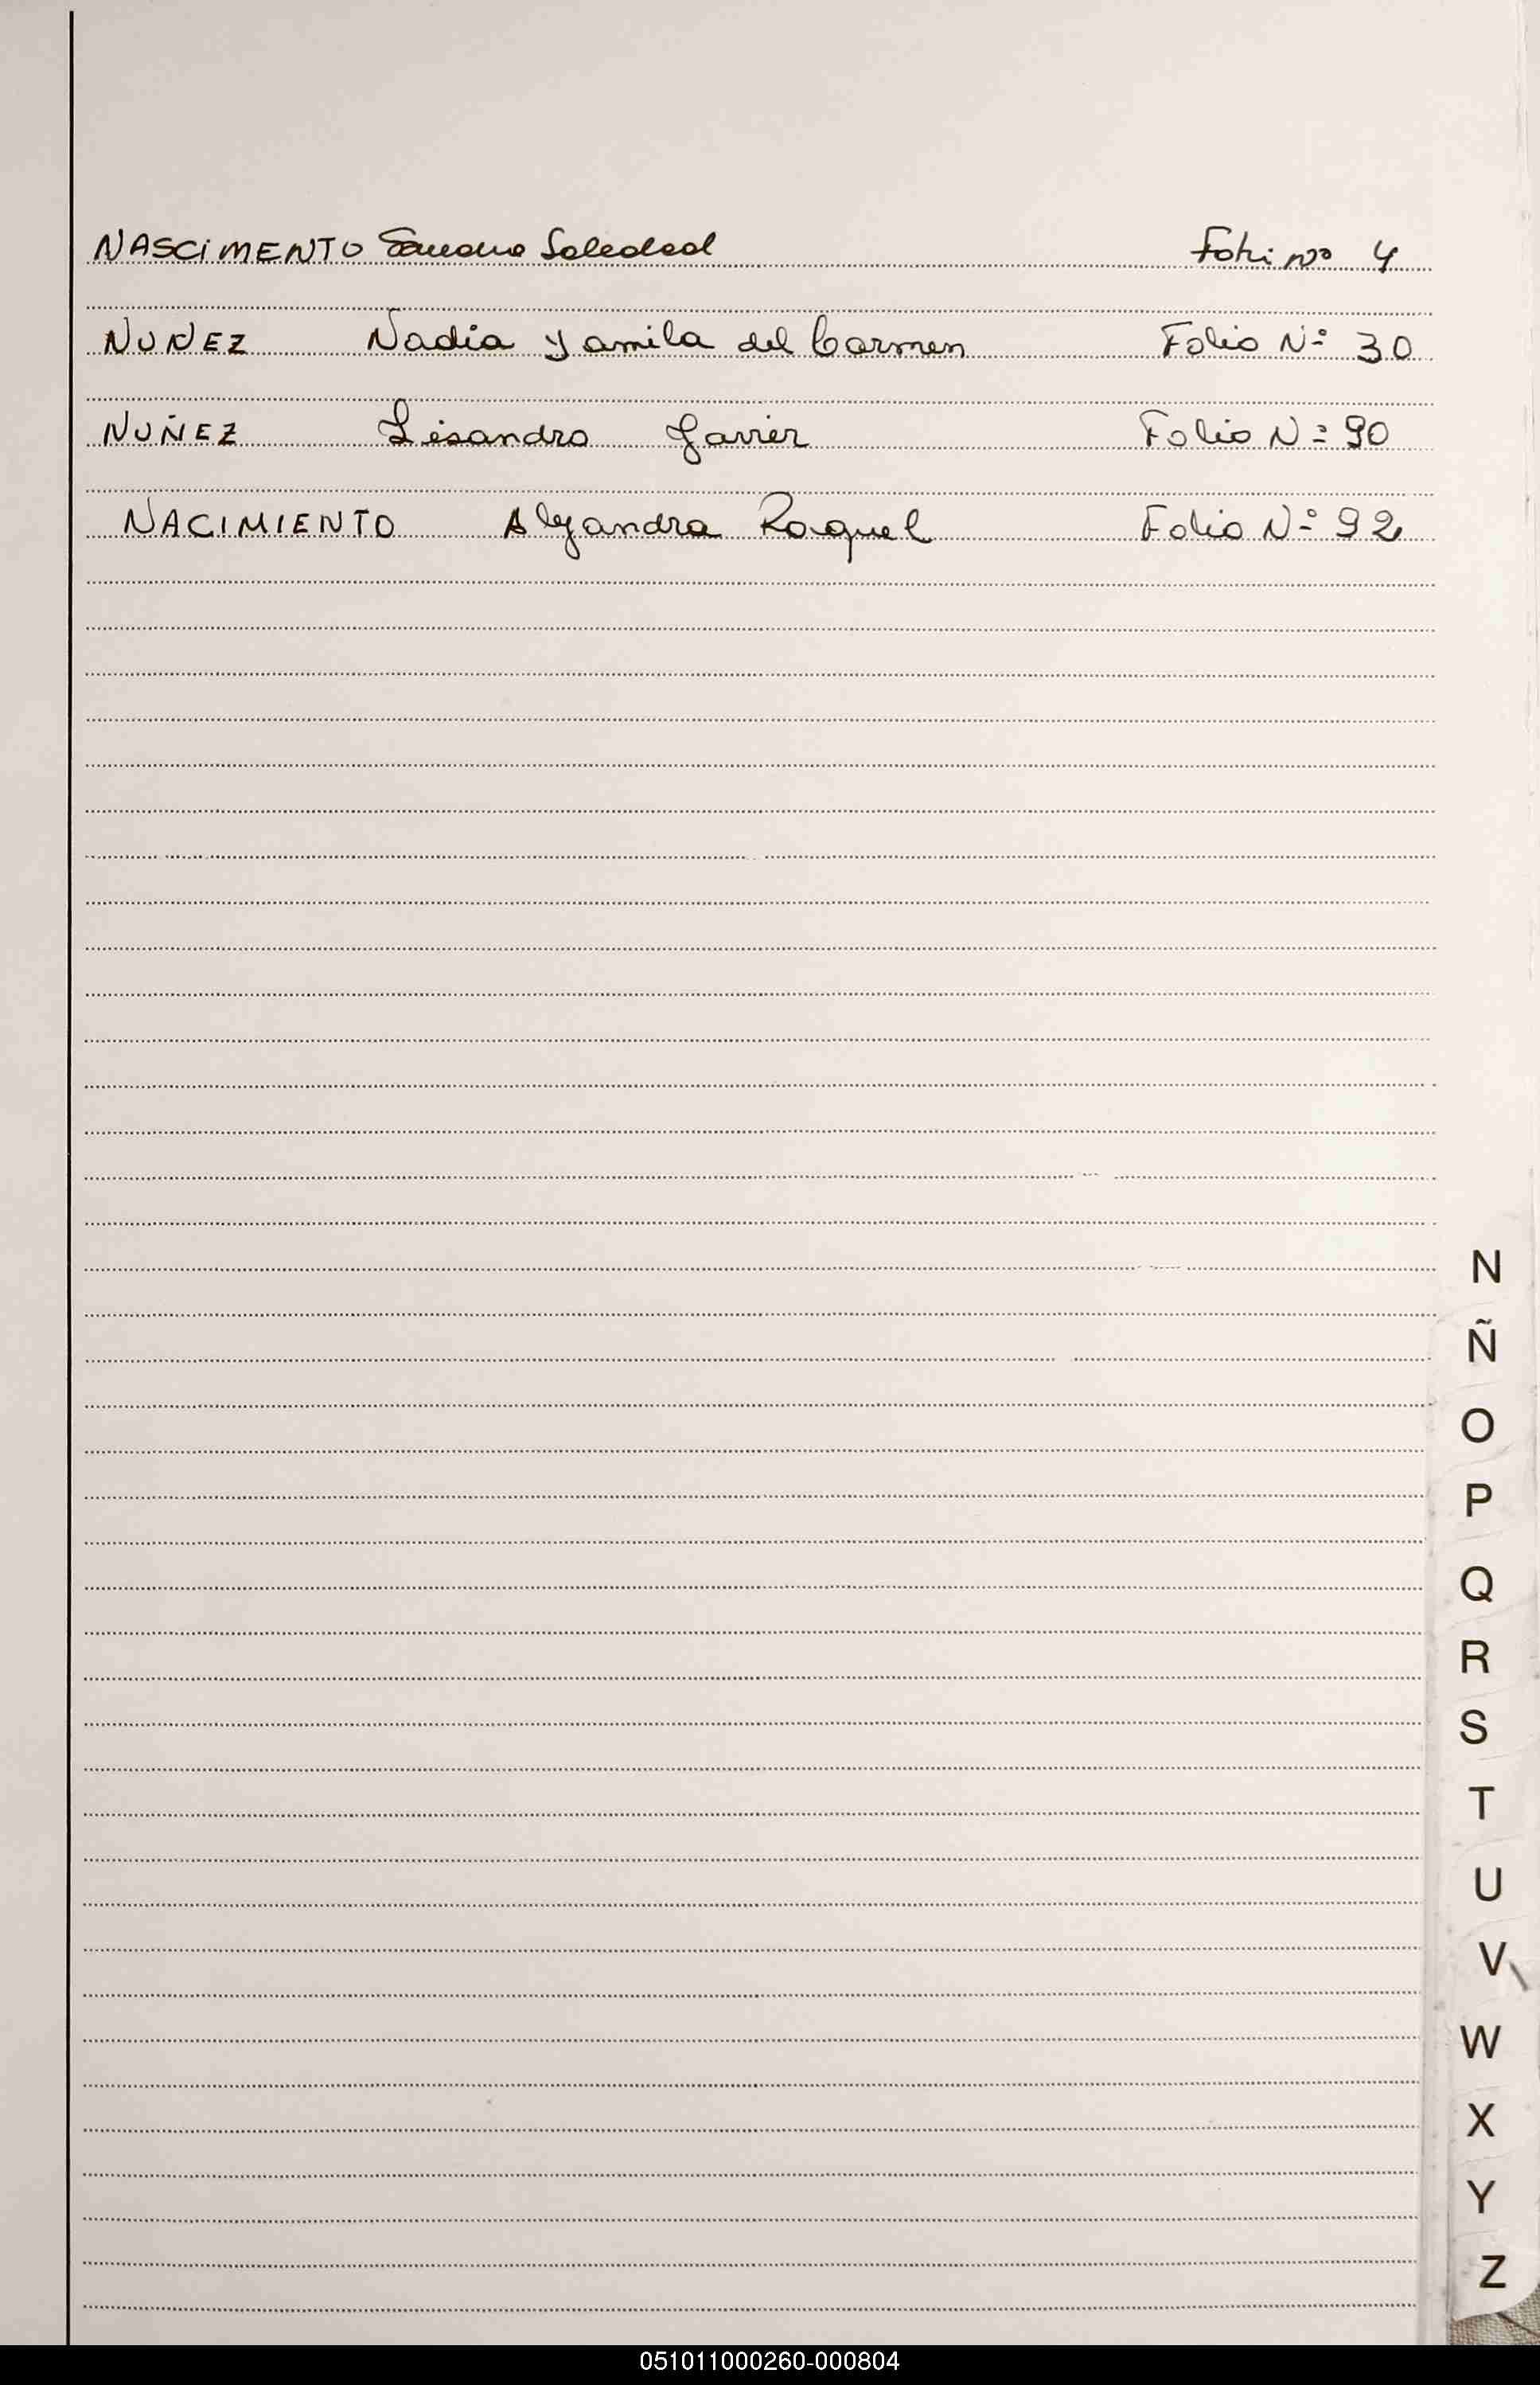 NASCIMENTO Soledad Folio Nº 4
NUÑEZ Nadia Yamila del Carmen Folio Nº 30
NUÑEZ Lisandro Javier Folio Nº 90
NACIMIENTO Alejandra Raquel Folio Nº 92
N
Ñ
O
P
Q
R
S
T
U
V
W
X
Y
Z
051011000260-000804